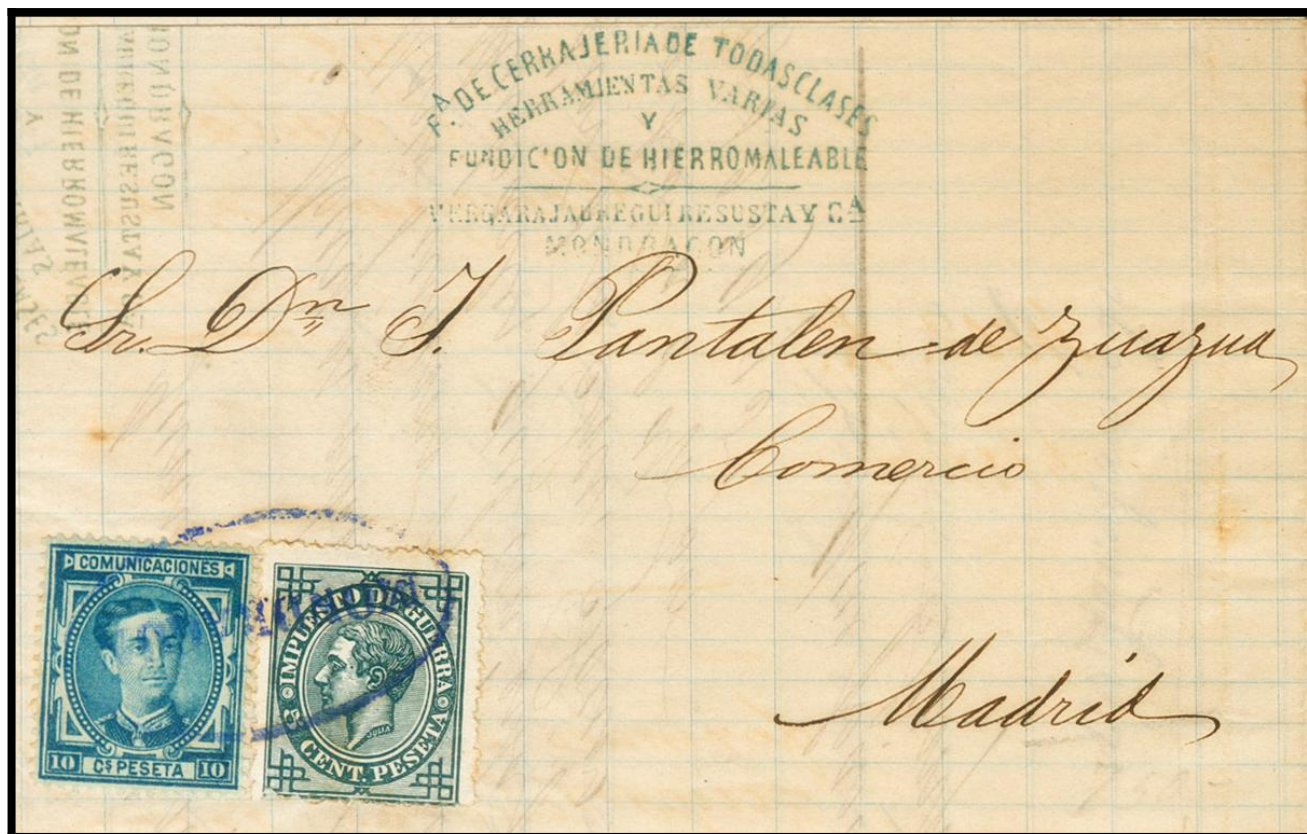 F.A DE CERRAJERIA DE TODAS CLASES
HERRAMIENTAS VARIAS
Y
FUNDICION DE HIERRO MALEABLE
VERGARAJAUREGUI RESUSTA Y CA
MONDRAGON
Sr. Dn J. Pantalen de Zuazua
Comercio
Madrid
COMUNICACIONES
10 Cs PESETA 10
IMPUESTO DE GUERRA
5 CENT. PESETA
JULIA